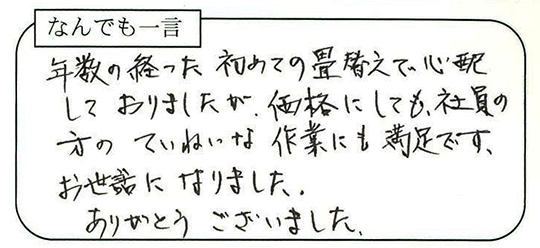 なんでも一言
年数の経った 初めての畳替えで、心配
しておりましたが、価格にしても、社員の
方の ていねいな 作業にも 満足です、
お世話に なりました.
ありがとう ございました.